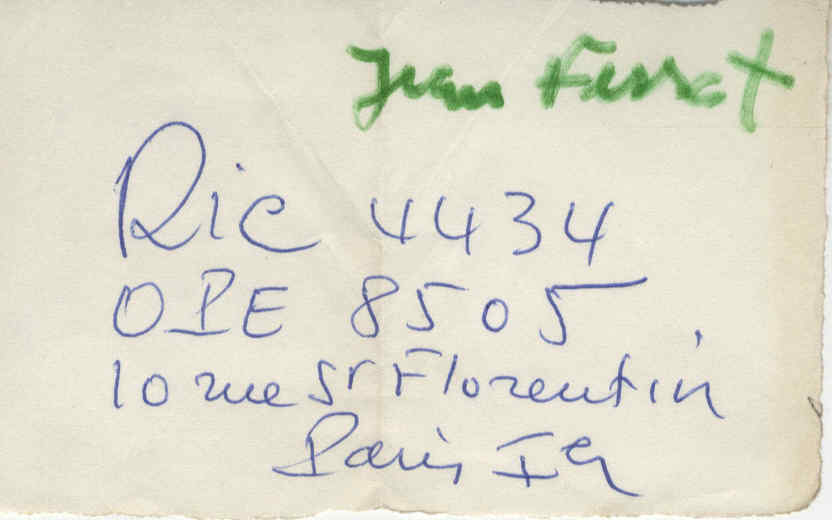 Jean Ferrat
Ric 4434
OPE 8505
10 rue St Florentin
Paris Ier